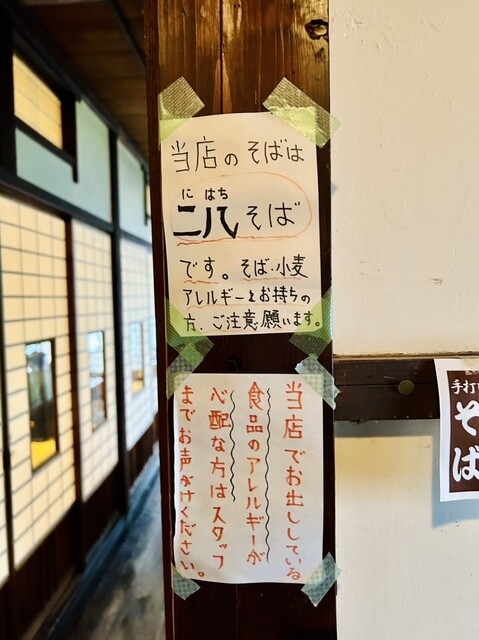 当店のそばは
にはち
二八そば
です。そば・小麦
アレルギーをお持ちの
方、ご注意願います。
当店でお出ししている
食品のアレルギーが
心配な方はスタッフ
までお声がけください。
手打
そば